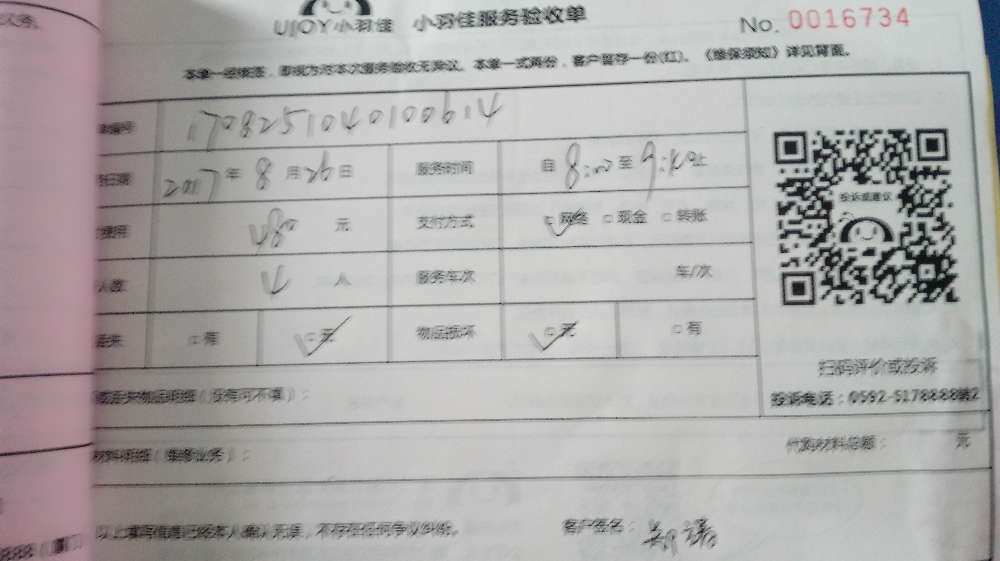 UJOY小羽佳 小羽佳服务验收单 No. 0016734
本单一经填签，即视为对本次服务验收无异议。本单一式两份，客户留存一份(红)。《维保须知》详见背面。
编号
日期 2017 年 8 月 29 日 服务时间 自 8: 至 9: 止
费用 180 元 支付方式 网络 现金 转账
人数 1 人 服务车次 车/次
有 无 物品损坏 无 有
投诉或建议
扫码评价或投诉
投诉电话：0592-5178888转2
物品明细（没有可不填）：
材料明细（维修业务）： 代购材料总额： 元
以上填写信息已经本人确认无误，不存在任何争议纠纷。 客户签名：